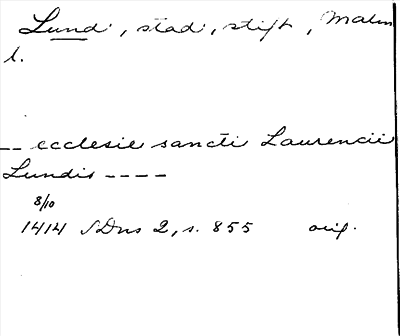 Lund, stad, stift, Malm
l.
-- ecclesie sancti Laurencii
Lundis ----
8/10
1414 SDns 2, s. 855 orig.